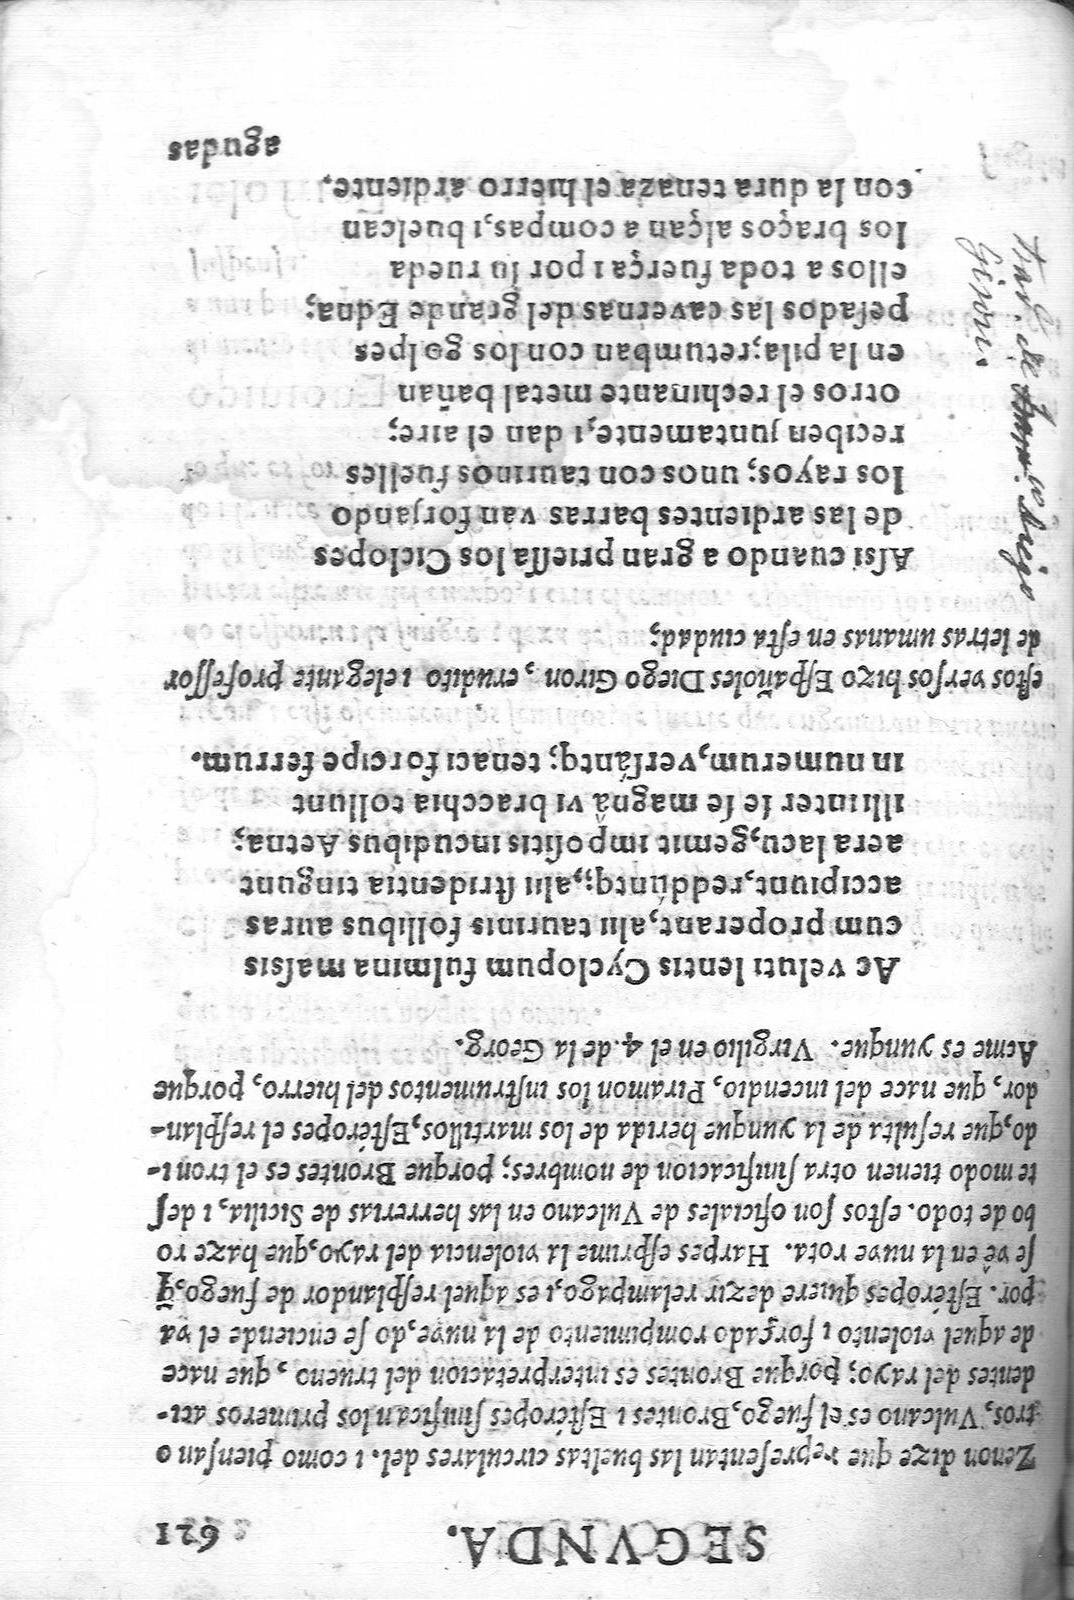 SEGVNDA. 621
Zenon dize que representan las bueltas circulares del. i como piensan o
tros, Vulcano es el fuego, Brontes i Estéropes sinifican los primeros aci-
dentes del rayo; porque Brontes es interpretacion del trueno, que nace
de aquel violento i forçado rompimiento de la nuve, do se enciende el va
por. Estéropes quiere dezir relampago, i es aquel resplandor de fuego, q̃
se vê en la nuve rota. Harpes esprime la violencia del rayo, que haze ro
bo de todo. estos son oficiales de Vulcano en las herrerias de Sicilia, i des
te modo tienen otra sinificacion de nombres; porque Brontes es el troni-
do, que resulta de la yunque herida de los martillos, Estéropes el resplan-
dor, que nace del incendio, Piramon los instrumentos del hierro, porque
Acme es yunque. Virgilio en el 4. de la Georg.
Ac veluti lentis Cyclopum fulmina massis
cum properant, alii taurinis follibus auras
accipiunt, reddúntq;, alii stridentia tingunt
aera lacu, gemit impositis incudibus Aetna;
illi inter se se magnâ vi bracchia tollunt
in numerum, versántq; tenaci forcipe ferrum.
estos versos hizo Españoles Diego Giron, erudito i elegante professor
de letras umanas en esta ciudad;
Assi cuando a gran priessa los Ciclopes
de las ardientes barras van forjando
los rayos; unos con taurinos fuelles
reciben juntamente, i dan el aire;
otros el rechinante metal bañan
en la pila; retumban con los golpes
pesados las cavernas del grande Edna;
ellos a toda fuerça i por su rueda
los braços alçan a compas, i buelcan
con la dura tenaza el hierro ardiente.
agudas
Giron.